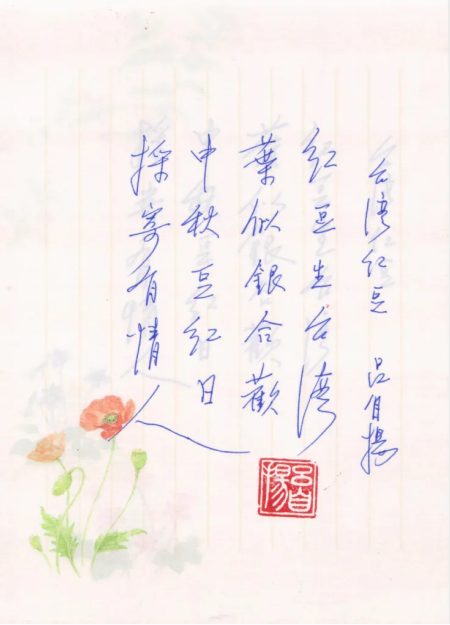 台湾紅豆 呂自揚
紅豆生台湾
葉似銀合歡
中秋豆紅日
採寄有情人
呂自揚